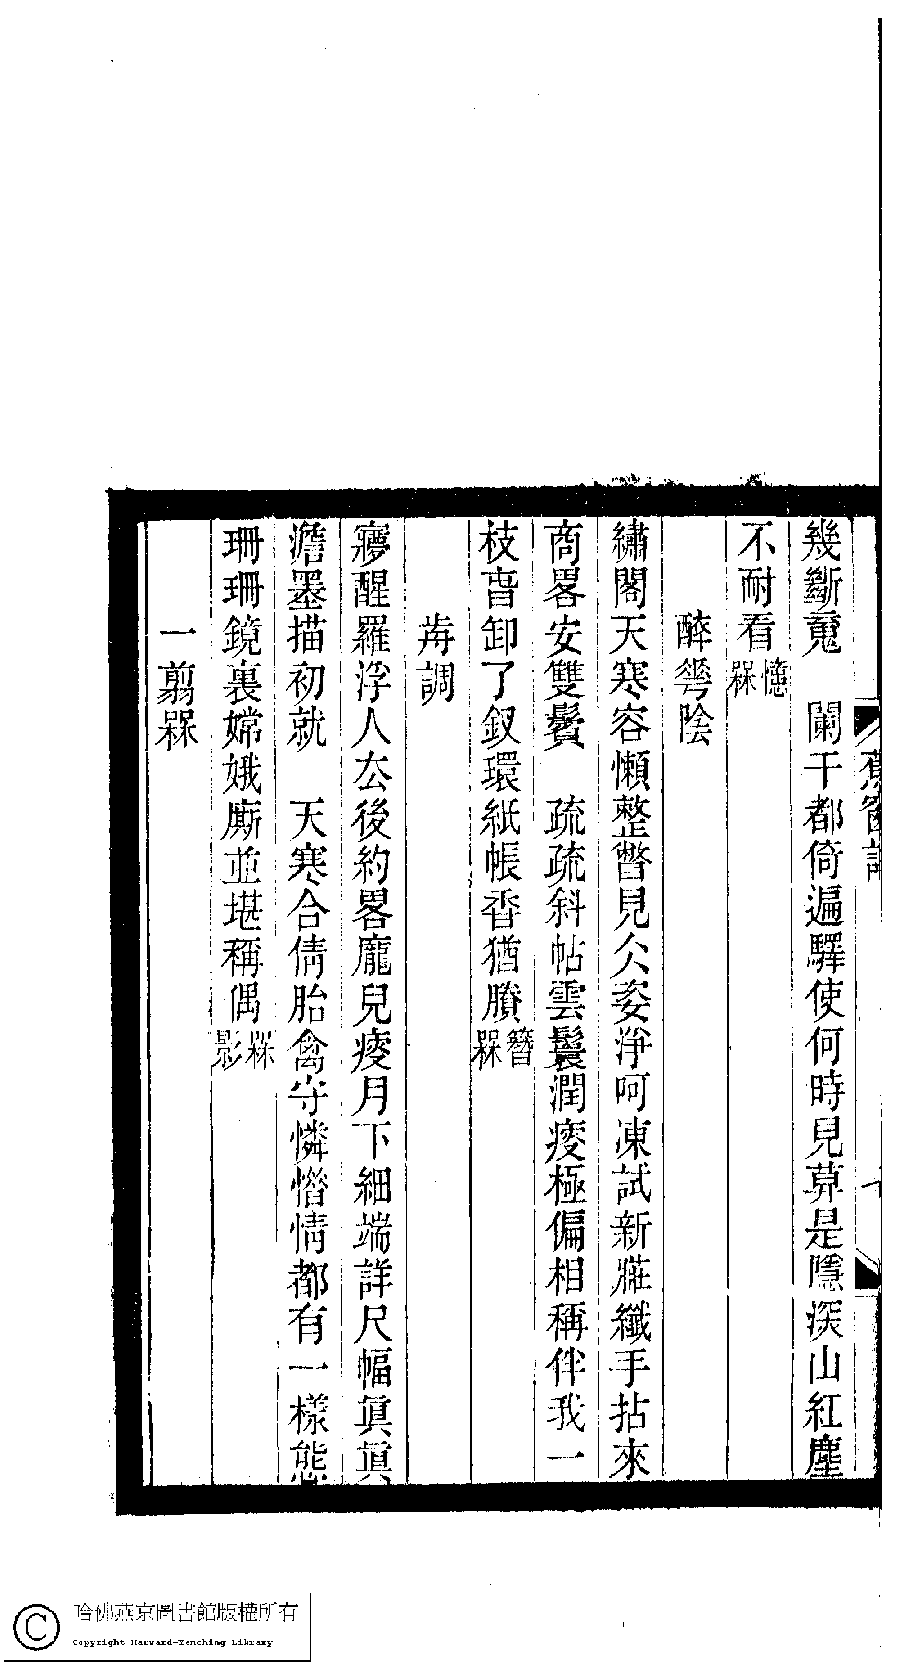 幾斷䰟　闌干都倚遍驛使何時見算是隱深山紅塵
不耐看憶槑
醉蕚陰
繡閣天寒容懶整瞥見仌姿淨呵凍試新妝纖手拈來
商畧安雙鬢　疏疏斜帖雲鬟潤痩極偏相稱伴我一
枝昏卸了釵環紙帳香猶賸簪槑
歬調
寢醒羅浮人厺後約畧龐兒痩月下細端詳尺幅眞眞
澹墨描初就　天寒合倩胎禽守憐惜情都有一樣態
珊珊鏡裏嫦娥廝並堪稱偶槑影
一翦槑
蕉窗詞
哈佛燕京圖書館版權所有
Copyright Harvard-Yenching Library